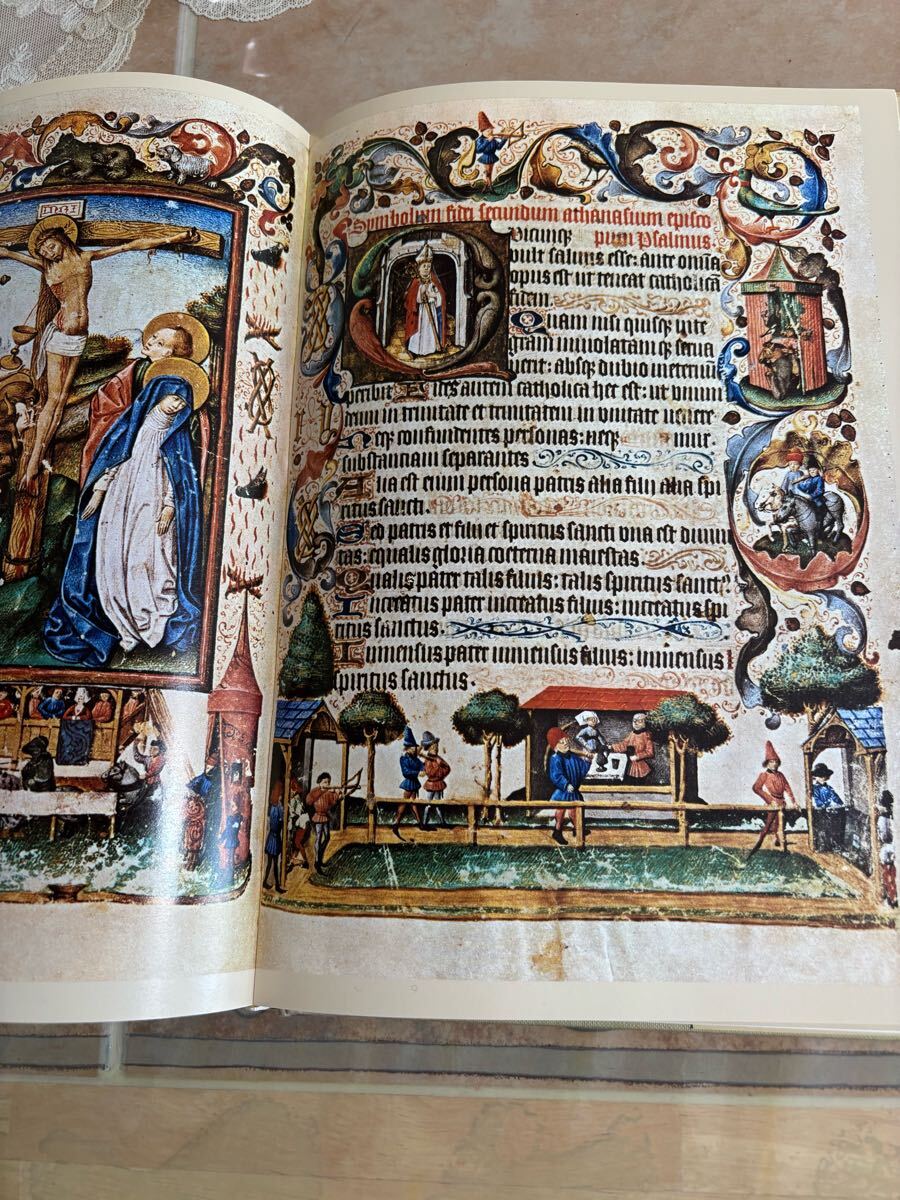 INRI
Symbolum fidei secundum athanasium episco
pum Psalmus.
Quicunq
vult salvus esse: ante omia
opus est ut teneat catholica
fidem.
Quam nisi quisq inte
gram inviolatamq serva
verit: absq dubio in eternu
peribit Fides autem catholica hec est: ut unum
deum in trinitate et trinitatem in unitate venere
Neqz confundentes personas: neqz
substanciam separantes
Alia est enim persona patris alia filii alia spi
ritus sancti.
Sed patris et filii et spiritus sancti una est divini
tas: equalis gloria coeterna maiestas.
Qualis pater talis filius: talis spiritus sanct9
Increatus pater increatus filius: increatus spi
ritus sanctus.
Immensus pater immensus filius: immensus
spiritus sanctus.